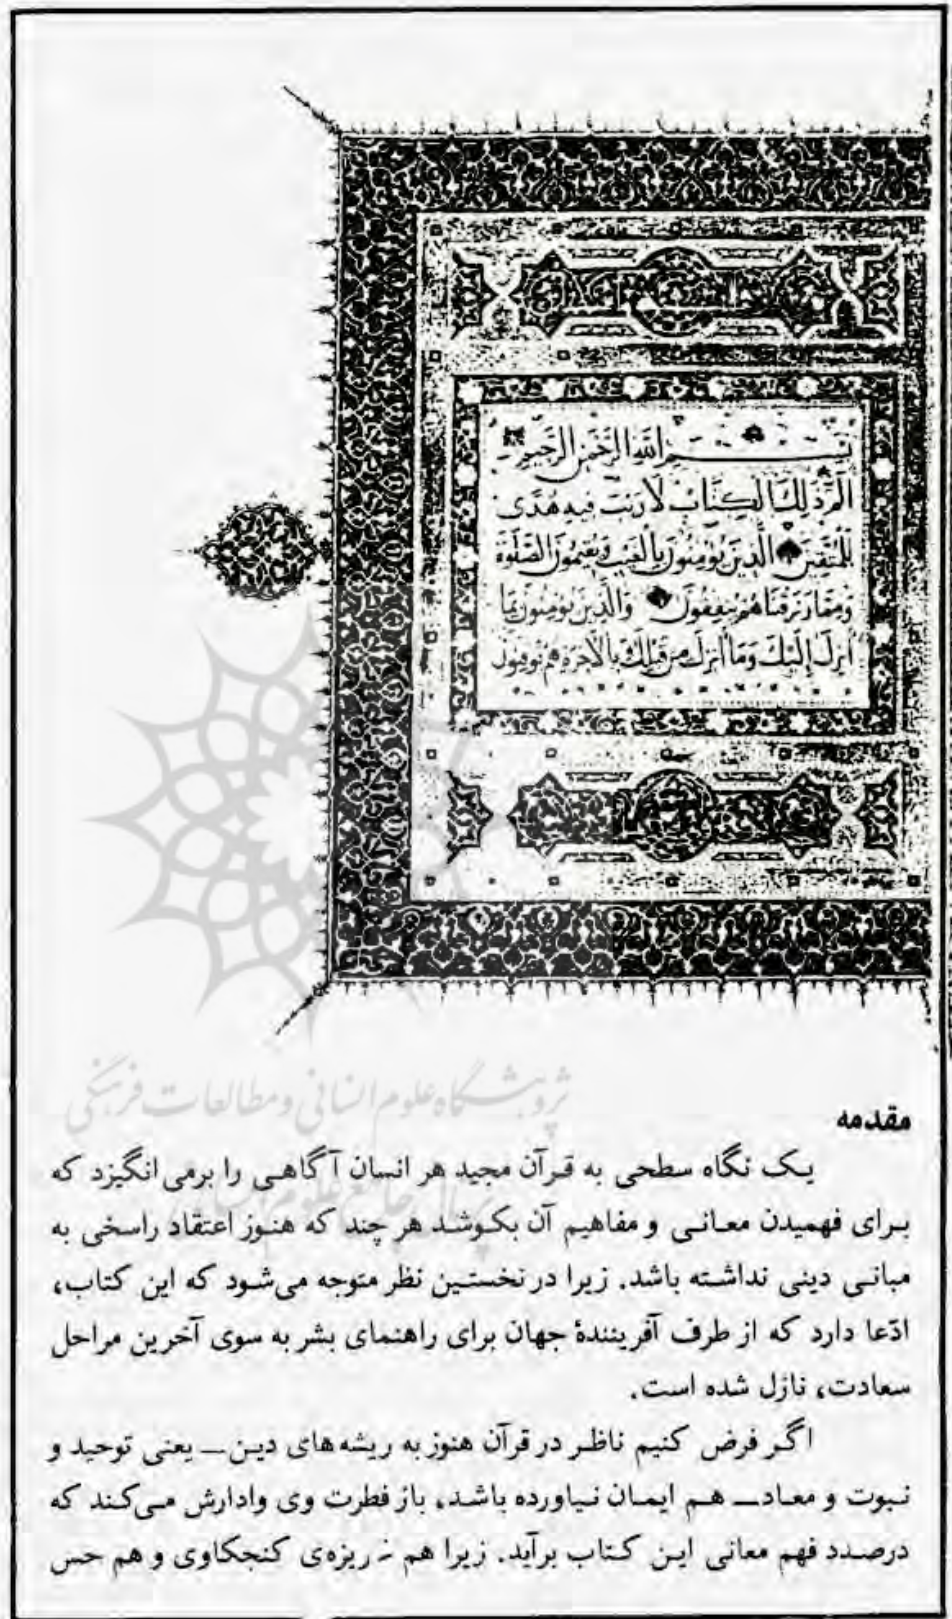 بسم الله الرحمن الرحیم
الم ذلك الكتاب لا ريب فيه هدى
للمتقين الذين يؤمنون بالغيب ويقيمون الصلوة
ومما رزقناهم ينفقون والذين يؤمنون بما
انزل إليك وما انزل من قبلك بالآخرة هم يوقنون
پژوهشگاه علوم انسانی و مطالعات فرهنگی
مقدمه
یک نگاه سطحی به قرآن مجید هر انسان آگاهی را برمی‌انگیزد که
برای فهمیدن معانی و مفاهیم آن بکوشد هر چند که هنوز اعتقاد راسخی به
مبانی دینی نداشته باشد. زیرا در نخستین نظر متوجه می‌شود که این کتاب،
ادّعا دارد که از طرف آفرینندهٔ جهان برای راهنمای بشر به سوی آخرین مراحل
سعادت، نازل شده است.
اگر فرض کنیم ناظر در قرآن هنوز به ریشه‌های دین ــ یعنی توحید و
نبوت و معاد ــ هم ایمان نیاورده باشد، باز فطرت وی وادارش می‌کند که
درصدد فهم معانی این کتاب برآید. زیرا هم ریزه‌ی کنجکاوی و هم حس